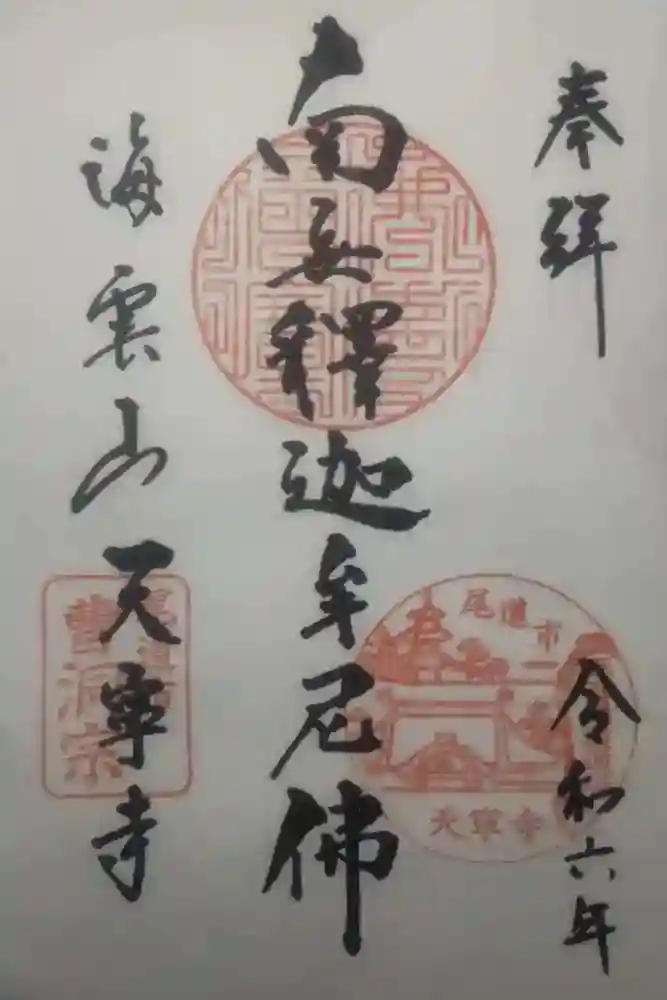 奉拝
令和六年
南無釋迦牟尼佛
海雲山
天寧寺
尾道市
天寧寺
曹洞宗